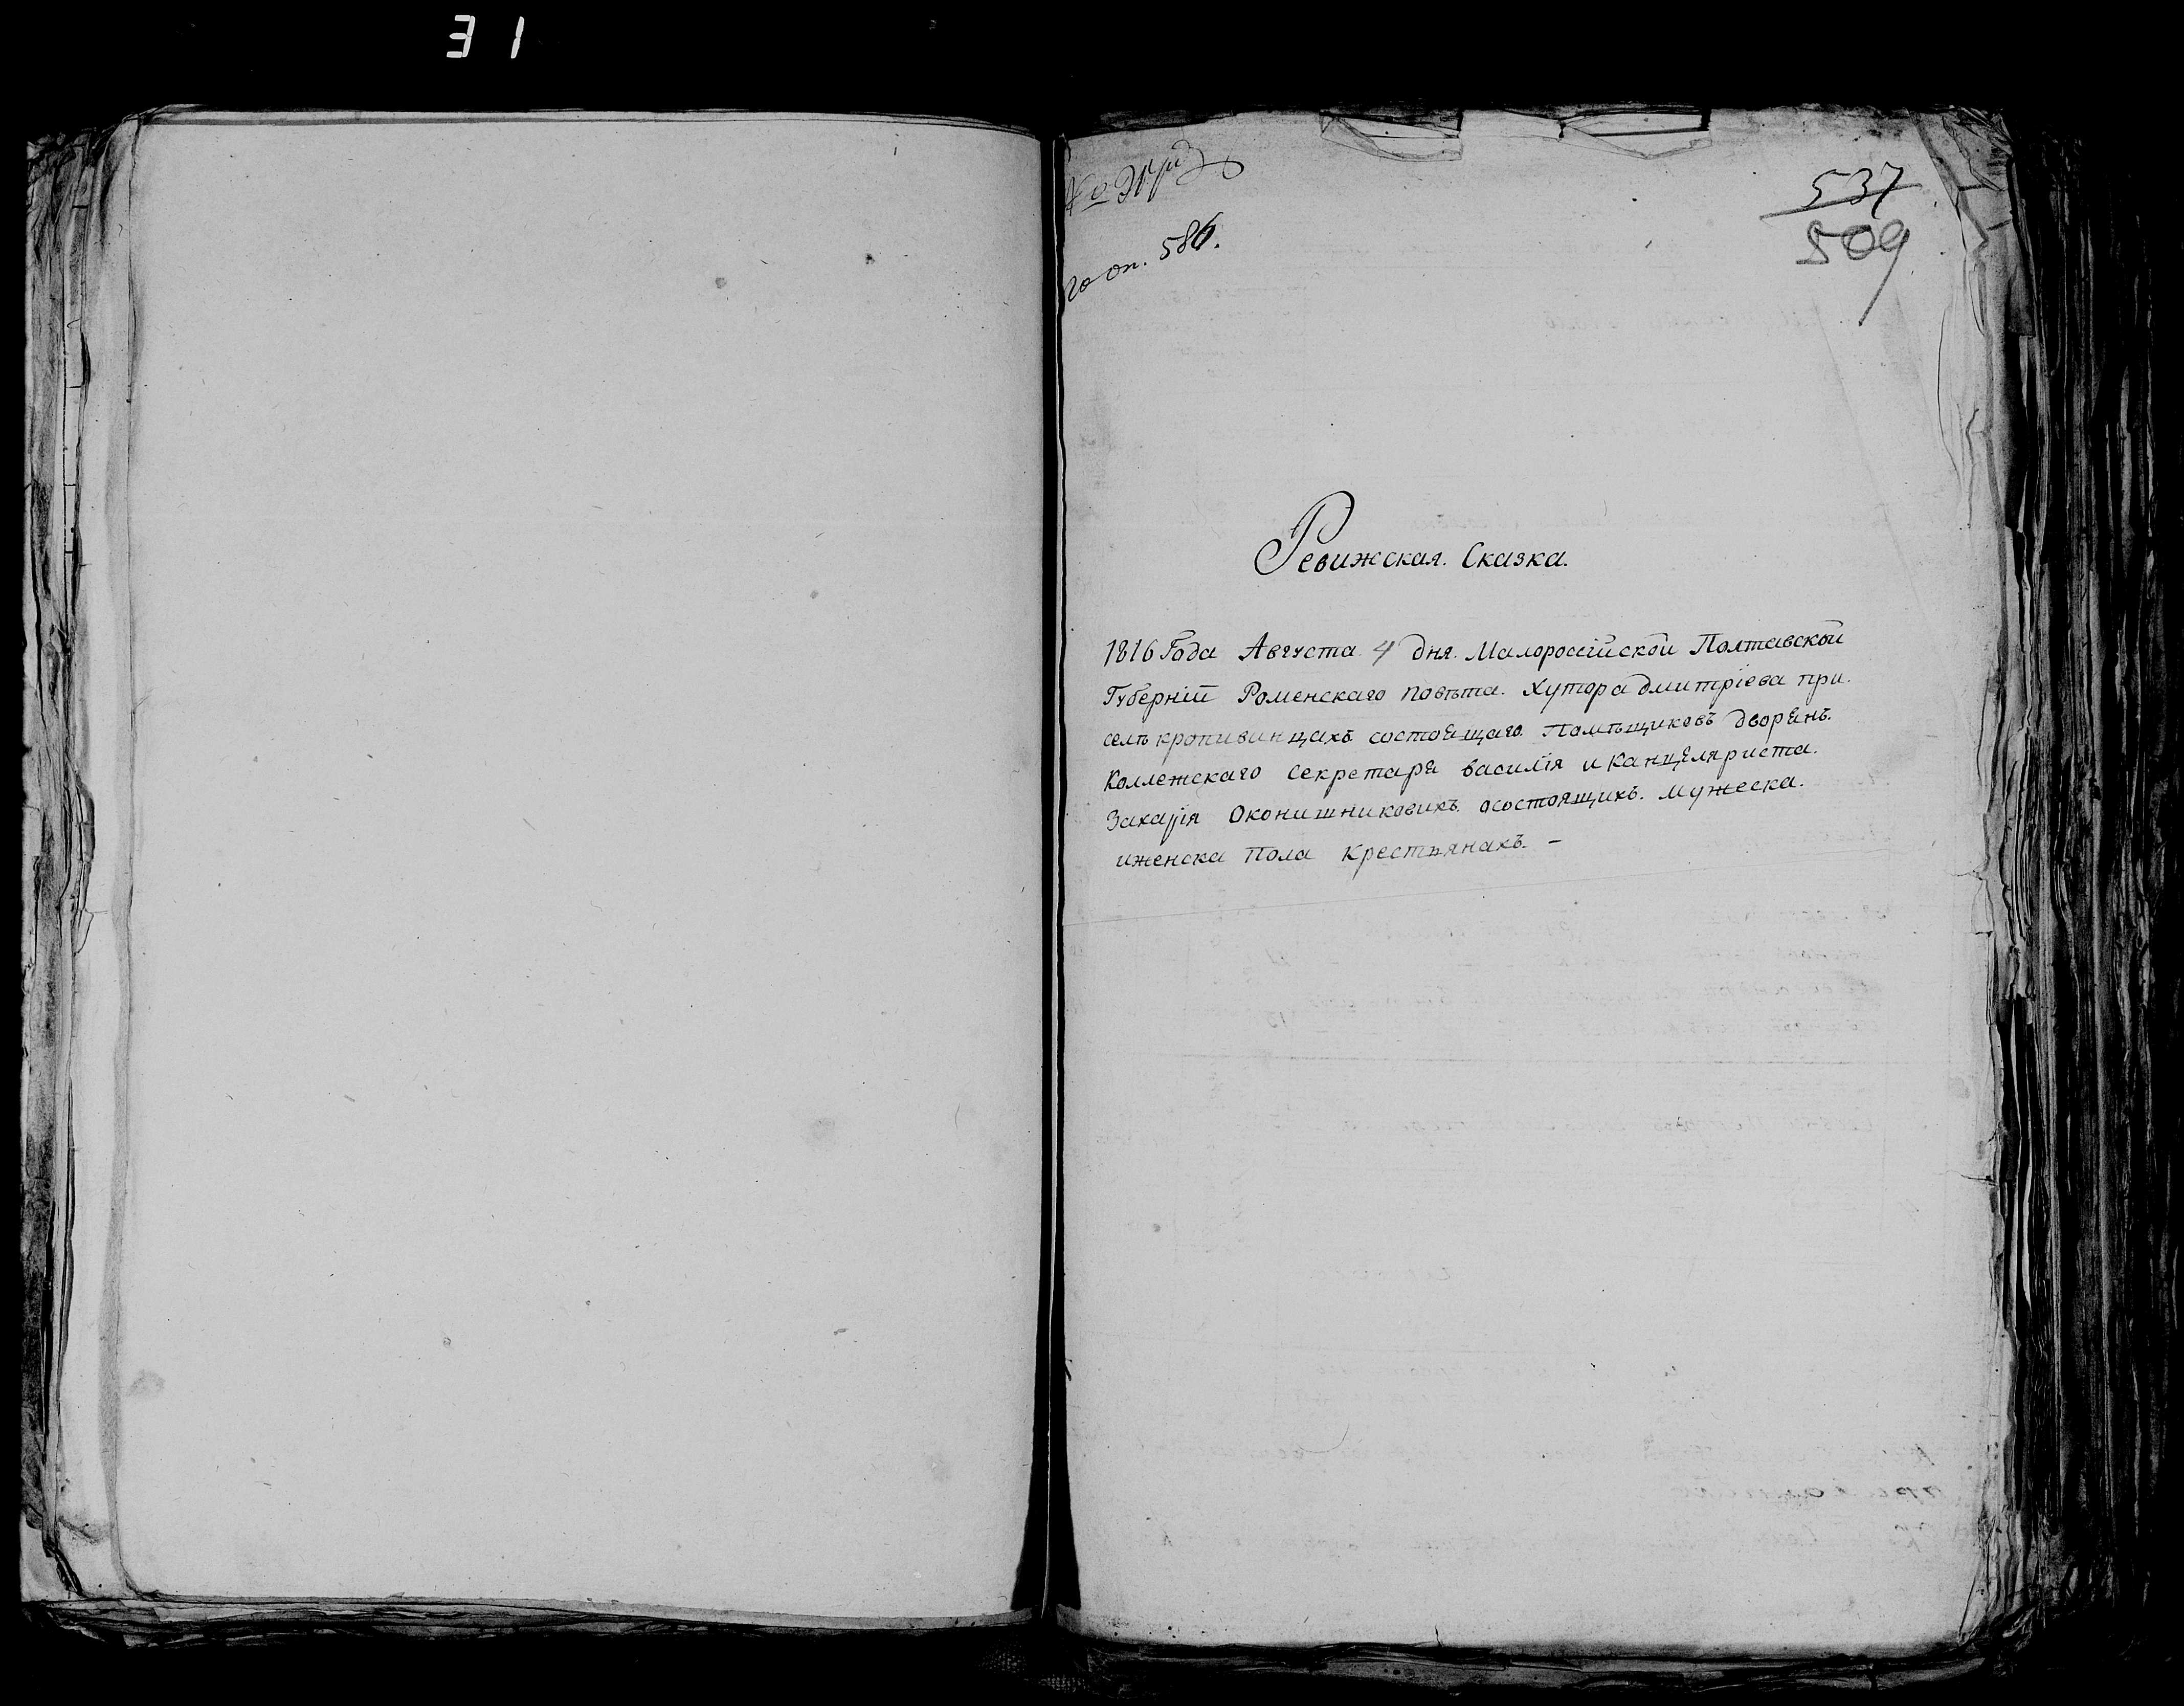 31
го оп. 586.
537
509
Ревижская. Сказка.
1816 Года Августа 4 дня. Малоросси́йской Полтавской
Губернiй Роменскаго повѣта. Хутора дмитрiева при.
селѣ кропивинцахъ состоящаго Помѣщиковъ дворянъ.
Коллежскаго Секретаря василiя и канцеляриста.
Захарiя Оконишниковихъ осостоящихъ. мужеска.
иженска Пола крестьянахъ. –